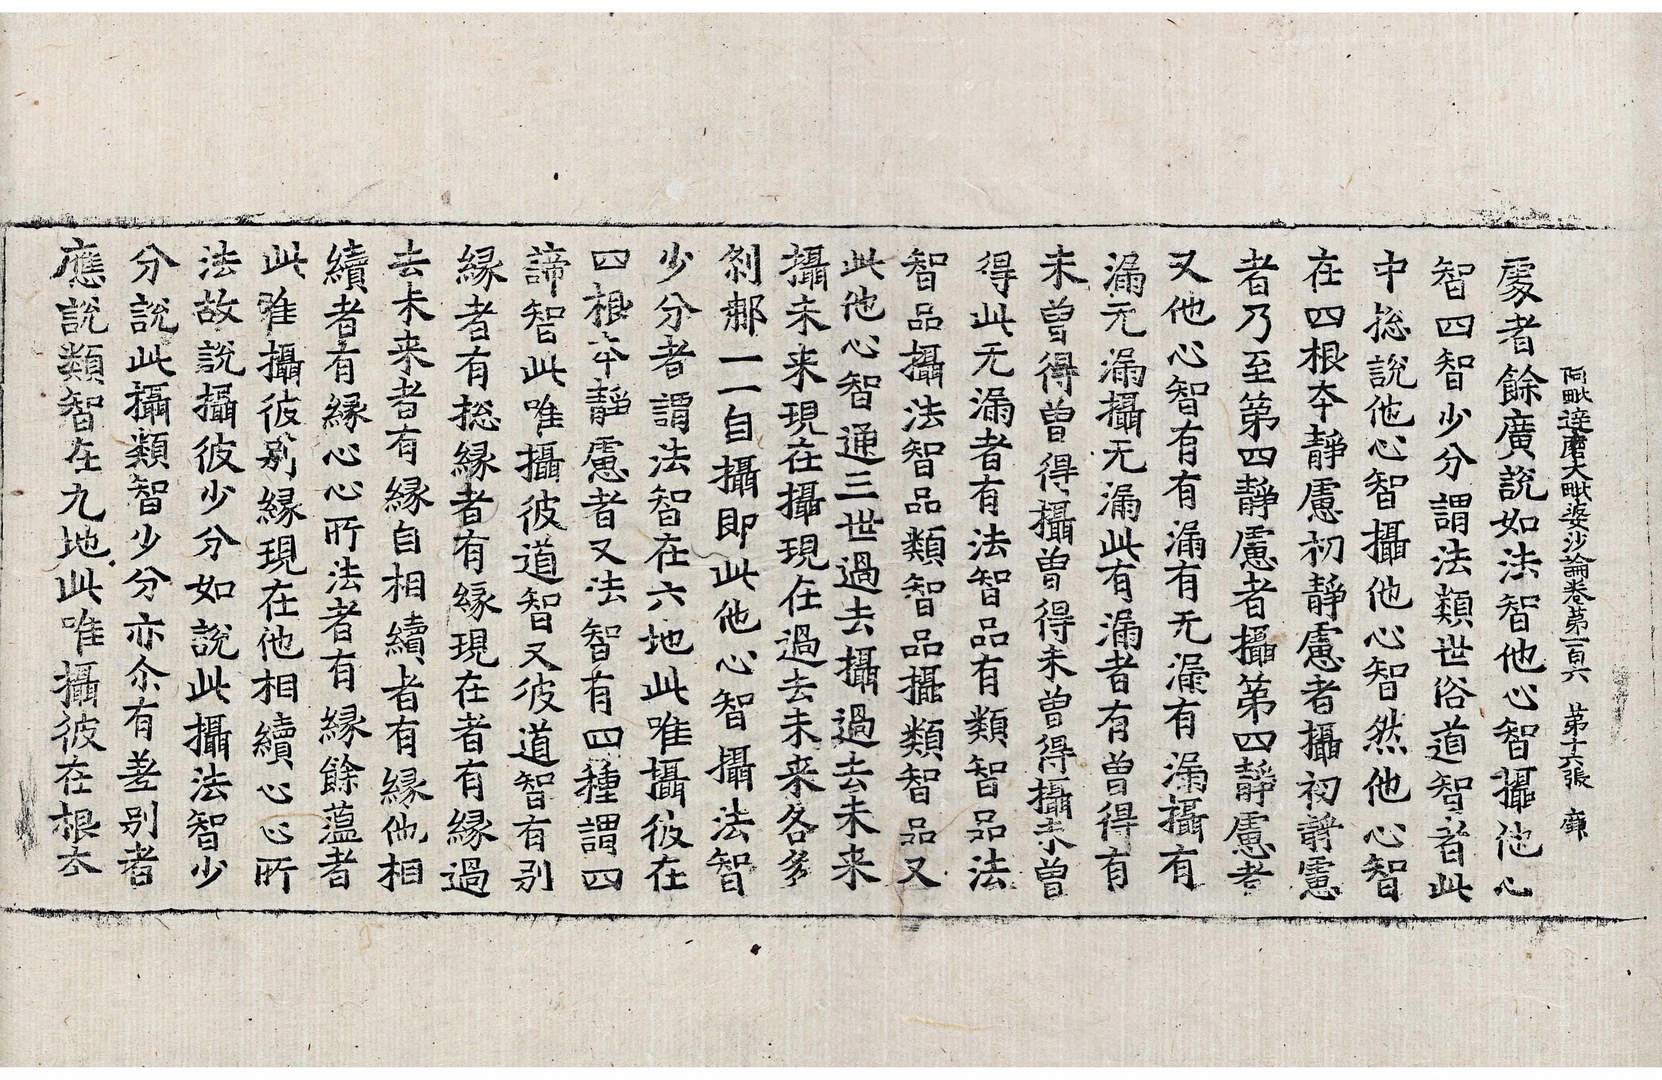 阿毗達磨大毗婆沙論卷第一百六 第十六張 廉
處者餘廣說如法智他心智攝他心
智四智少分謂法類世俗道智者此
中揔說他心智攝他心智然他心智
在四根夲靜慮初靜慮者攝初靜慮
者乃至第四靜慮者攝第四靜慮者
又他心智有有漏有无漏有漏攝有
漏无漏攝无漏此有漏者有曾得有
未曾得曾得攝曾得未曾得攝未曾
得此无漏者有法智品有類智品法
智品攝法智品類智品攝類智品又
此他心智通三世過去攝過去未来
攝未来現在攝現在過去未来各多
剎那一一自攝即此他心智攝法智
少分者謂法智在六地此唯攝彼在
四根夲靜慮者又法智有四種謂四
諦智此唯攝彼道智又彼道智有別
緣者有揔緣者有緣現在者有緣過
去未来者有緣自相續者有緣他相
續者有緣心心所法者有緣餘蘊者
此唯攝彼別緣現在他相續心心所
法故說攝彼少分如說此攝法智少
分說此攝類智少分亦尒有差別者
應說類智在九地此唯攝彼在根夲